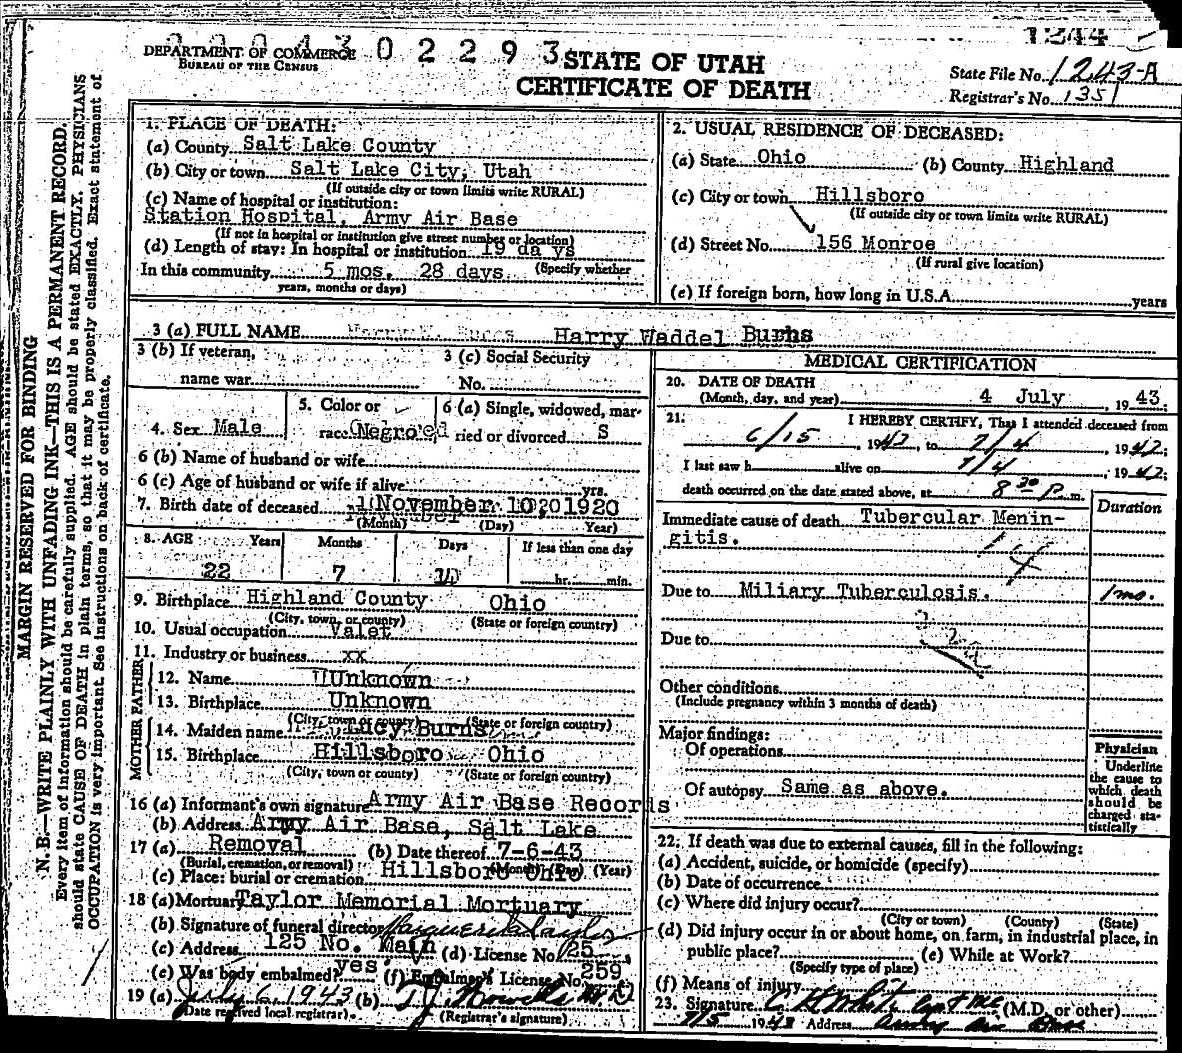 DEPARTMENT OF COMMERCE
BUREAU OF THE CENSUS
0 2 2 9 3
STATE OF UTAH
CERTIFICATE OF DEATH
1244
State File No. 1243-A
Registrar's No. 1351
MARGIN RESERVED FOR BINDING
N. B.—WRITE PLAINLY WITH UNFADING INK—THIS IS A PERMANENT RECORD.
Every item of information should be carefully supplied. AGE should be stated EXACTLY. PHYSICIANS
should state CAUSE OF DEATH in plain terms, so that it may be properly classified. Exact statement of
OCCUPATION is very important. See instructions on back of certificate.
1. PLACE OF DEATH:
(a) County Salt Lake County
(b) City or town Salt Lake City, Utah
(If outside city or town limits write RURAL)
(c) Name of hospital or institution:
Station Hospital, Army Air Base
(If not in hospital or institution give street number or location)
(d) Length of stay: In hospital or institution 19 da ys
In this community 5 mos. 28 days (Specify whether
years, months or days)
2. USUAL RESIDENCE OF DECEASED:
(a) State Ohio (b) County Highland
(c) City or town Hillsboro
(If outside city or town limits write RURAL)
(d) Street No. 156 Monroe
(If rural give location)
(e) If foreign born, how long in U.S.A. years
3 (a) FULL NAME Harry Waddel Burns
3 (b) If veteran,
name war
3 (c) Social Security
No.
4. Sex Male
5. Color or
race Negro
6 (a) Single, widowed, mar-
ried or divorced S
6 (b) Name of husband or wife
6 (c) Age of husband or wife if alive yrs.
7. Birth date of deceased November 10, 1920
(Month) (Day) Year)
8. AGE Years Months Days If less than one day
22 7 hr. min.
9. Birthplace Highland County Ohio
(City, town, or county) (State or foreign country)
10. Usual occupation Valet
11. Industry or business xx
FATHER
12. Name Unknown
13. Birthplace Unknown
(City, town or county) (State or foreign country)
MOTHER
14. Maiden name Lucy Burns
15. Birthplace Hillsboro Ohio
(City, town or county) (State or foreign country)
16 (a) Informant's own signature Army Air Base Records
(b) Address Army Air Base, Salt Lake
17 (a) Removal (b) Date thereof 7-6-43
(Burial, cremation, or removal) (Month) (Day) (Year)
(c) Place: burial or cremation Hillsboro Ohio
18 (a) Mortuary Taylor Memorial Mortuary
(b) Signature of funeral director Marguerite Taylor
(c) Address 125 No. Main (d) License No. 125
(e) Was body embalmed? yes (f) Embalmer's License No. 259
19 (a) July 6, 1943 (b)
(Date received local registrar) (Registrar's signature)
MEDICAL CERTIFICATION
20. DATE OF DEATH
(Month, day, and year) 4 July, 19 43.
21. I HEREBY CERTIFY, That I attended deceased from
6/15, 1943, to 7/4, 1943;
I last saw h alive on 7/4, 1943;
death occurred on the date stated above, at 8 30 P m.
Duration
Immediate cause of death Tubercular Menin-
gitis.
14
Due to Miliary Tuberculosis. 1 mo.
Due to
Other conditions
(Include pregnancy within 3 months of death)
Major findings:
Of operations
Of autopsy Same as above.
Physician
Underline
the cause to
which death
should be
charged sta-
tistically
22. If death was due to external causes, fill in the following:
(a) Accident, suicide, or homicide (specify)
(b) Date of occurrence
(c) Where did injury occur?
(City or town) (County) (State)
(d) Did injury occur in or about home, on farm, in industrial place, in
public place? (e) While at Work?
(Specify type of place)
(f) Means of injury
23. Signature C. H. White Capt MC (M.D. or other)
7/5 1943 Address Army Air Base